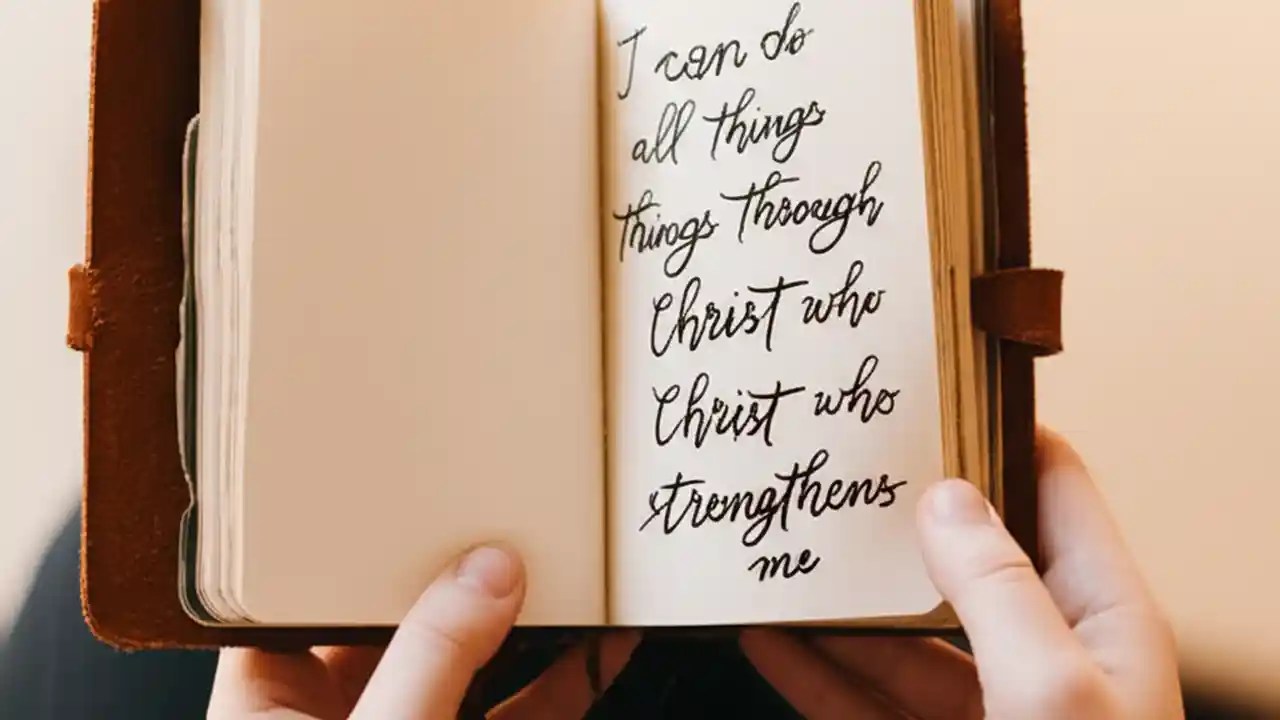 I can do
all things
things through
Christ who
Christ who
strengthens
me